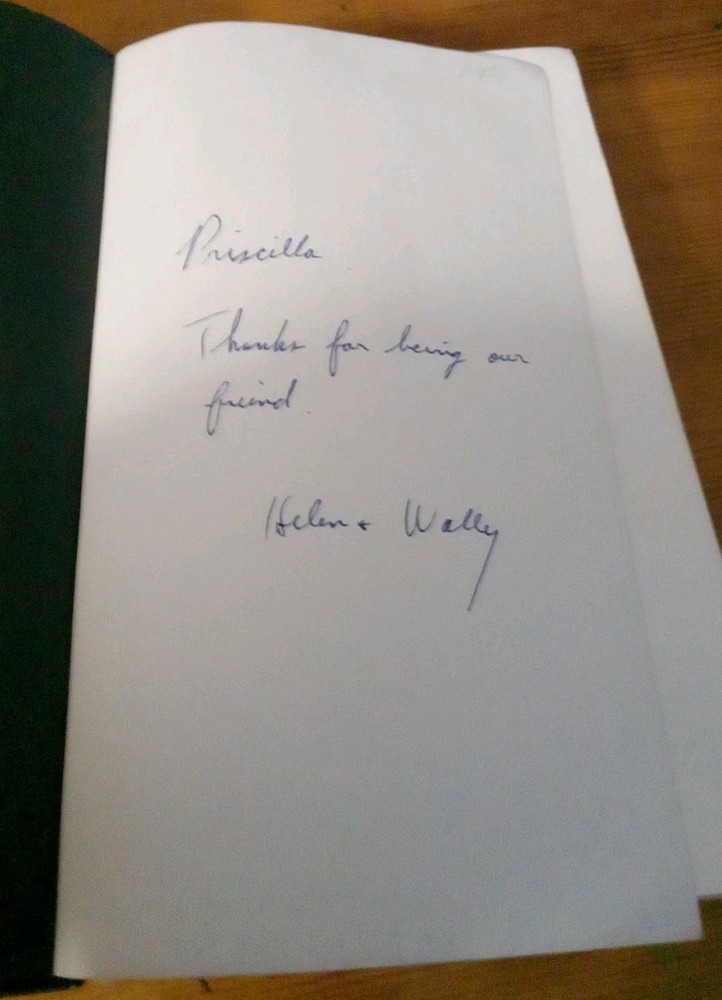 Priscilla
Thanks for being our
friend.
Helen + Wally